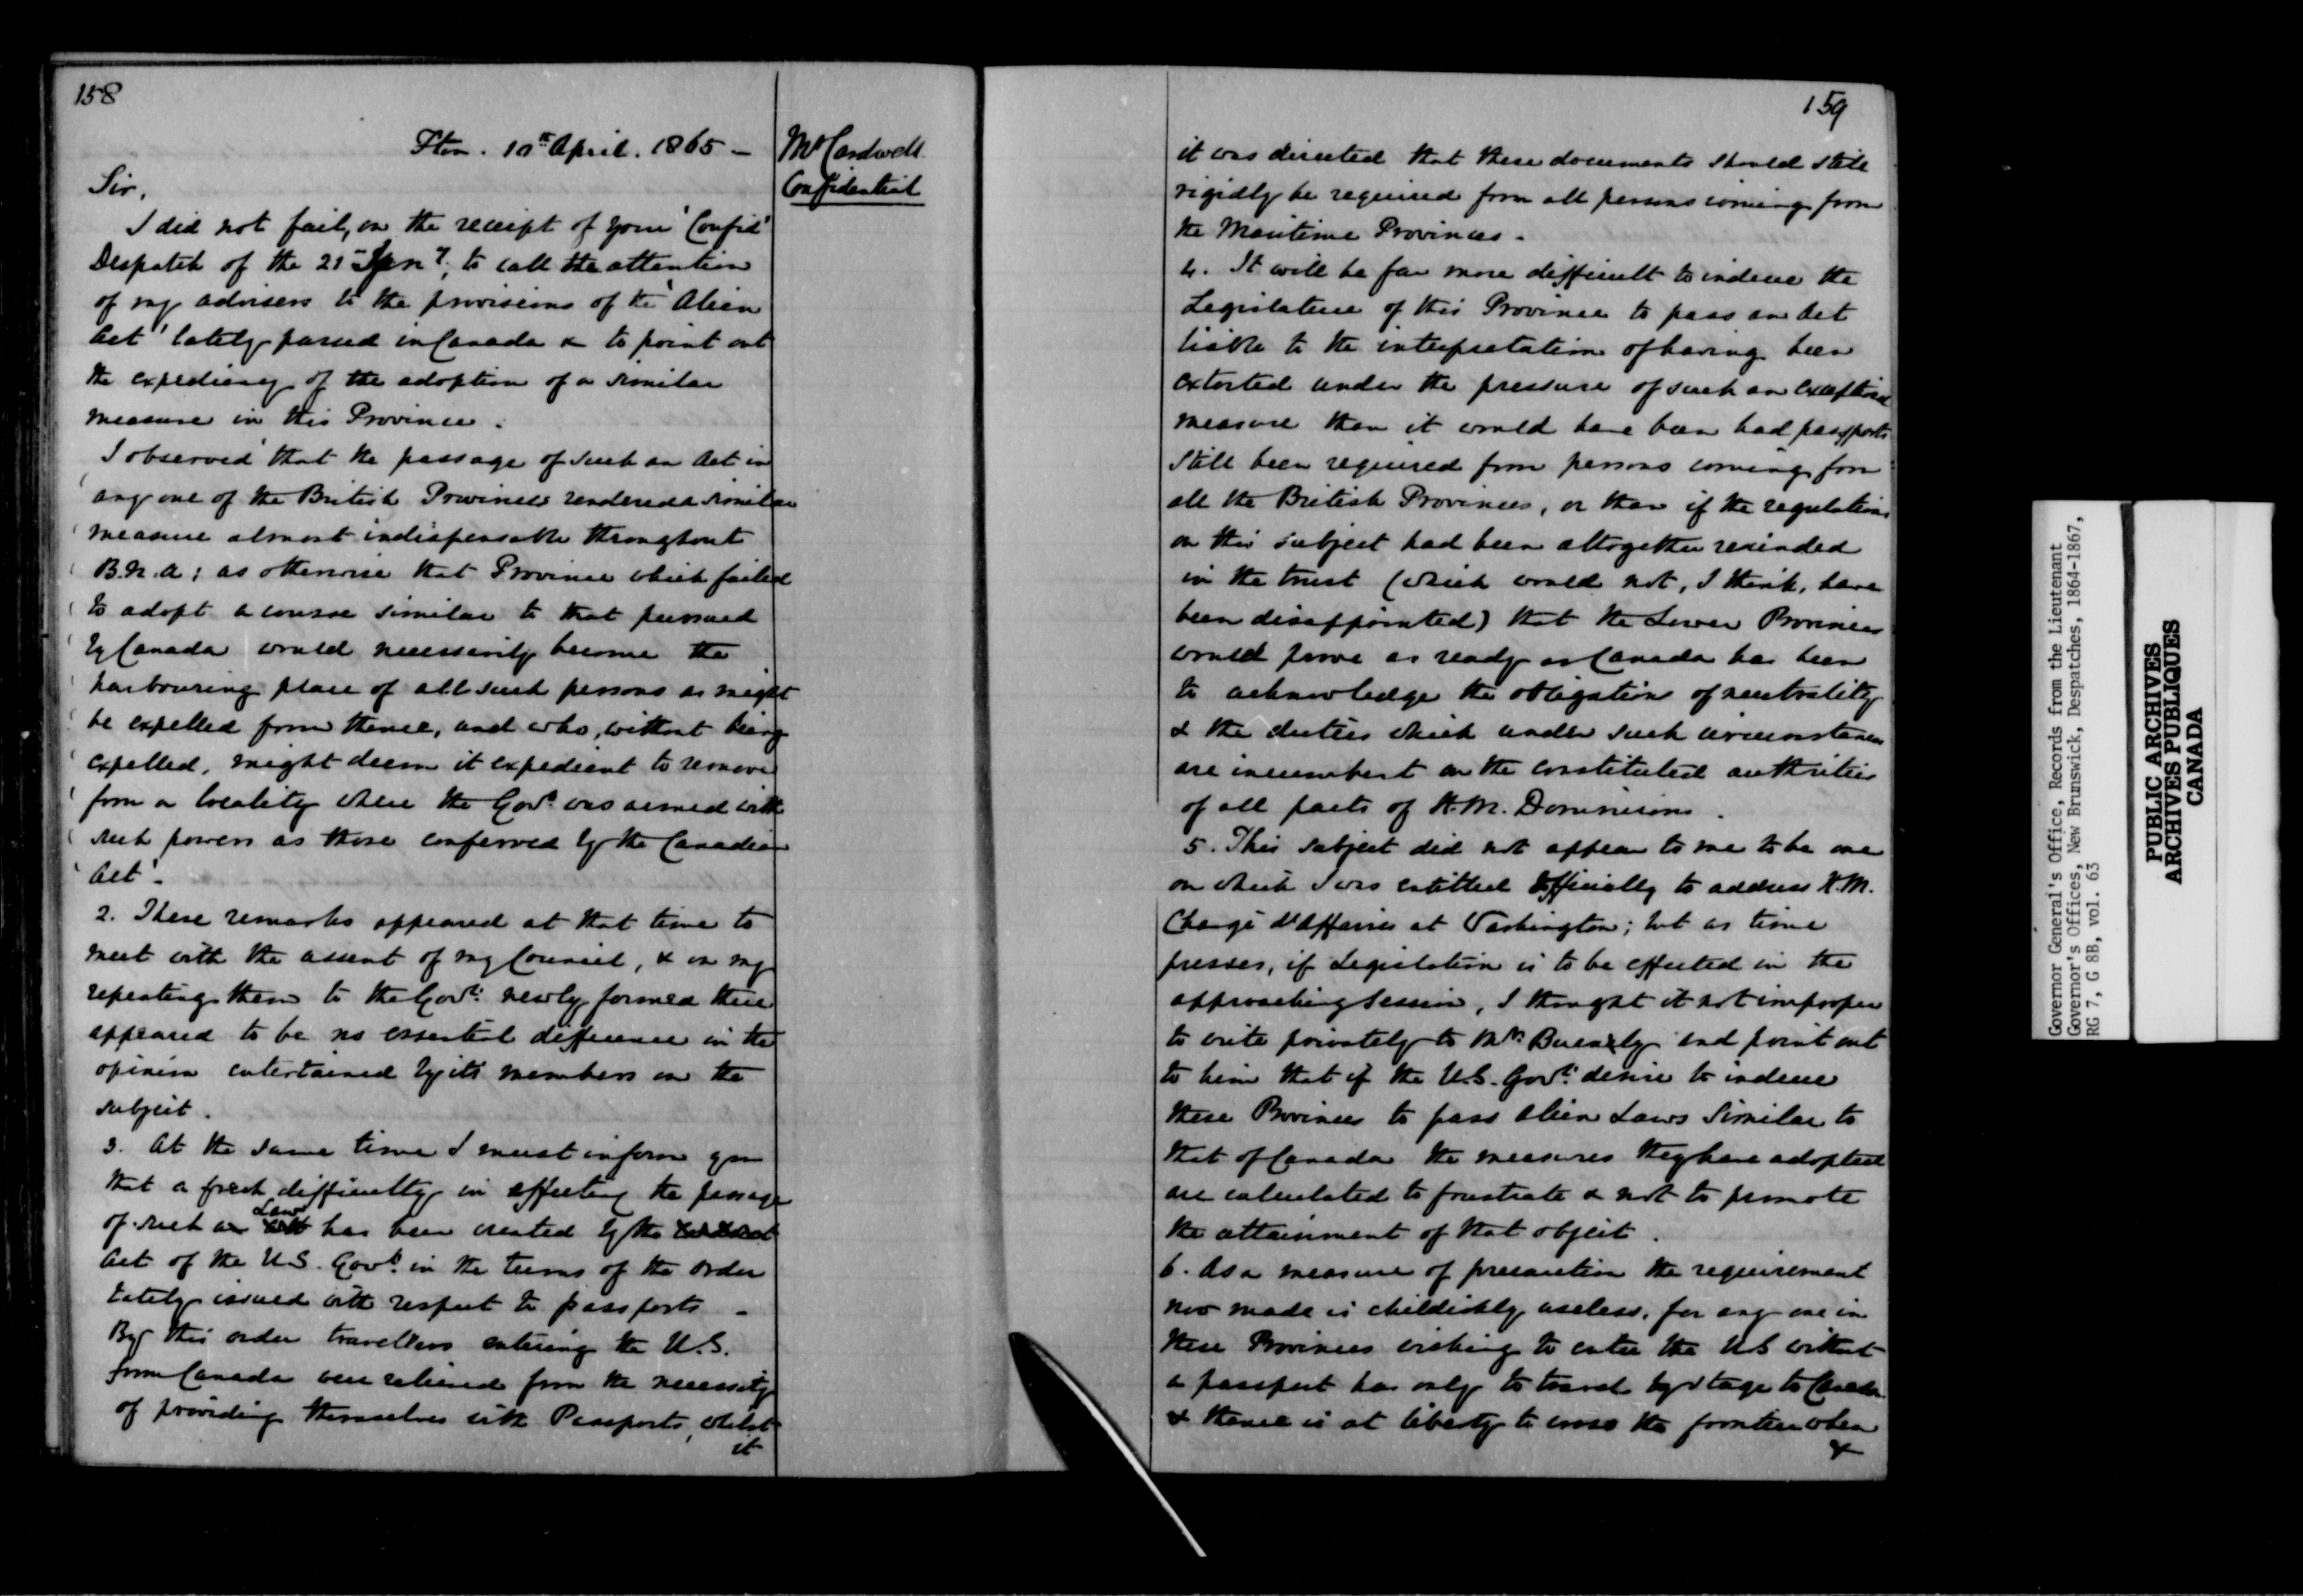 158
Fton. 10th April. 1865 –
Mr Cardwell
Confidential
Sir,
I did not fail, on the receipt of your 'Confid'
Despatch of the 21st Jany, to call the attention
of my advisers to the provisions of the 'Alien
Act' lately passed in Canada & to point out
the expediency of the adoption of a similar
measure in this Province.
I observed 'that the passage of such an Act in
' any one of the British Provinces rendered a similar
' measure almost indispensable throughout
' B.N.A; as otherwise that Province which failed
' to adopt a course similar to that pursued
' by Canada would necessarily become the
' harbouring place of all such persons as might
' be expelled from thence, and who, without being
' expelled, might deem it expedient to remove
' from a locality where the Govt. was armed with
' such powers as those conferred by the Canadian
' Act'.
2. These remarks appeared at that time to
meet with the assent of my Council, & on my
repeating them to the Govt. newly formed there
appeared to be no essential difference in the
opinion entertained by its members on the
subject.
3. At the same time I must inform you
that a fresh difficulty in effecting the passage
of such a Law has been created by the
Act of the U.S. Govt. in the terms of the order
lately issued with respect to passports –
By this order travellers entering the U.S.
from Canada were relieved from the necessity
of providing themselves with Passports, whilst
it
159
it was directed that these documents should still
rigidly be required from all persons coming from
the Maritime Provinces –
4. It will be far more difficult to induce the
Legislature of this Province to pass an Act
liable to the interpretation of having been
extorted under the pressure of such an exceptional
measure than it would have been had passports
still been required from persons coming from
all the British Provinces, or than if the regulations
on this subject had been altogether rescinded
in the trust (which would not, I think, have
been disappointed) that the Lower Provinces
would prove as ready as Canada has been
to acknowledge the obligations of neutrality
& the duties which under such circumstances
are incumbent on the constituted authorities
of all parts of H.M. Dominions.
5. This subject did not appear to me to be one
on which I was entitled officially to address H.M.
Chargé d'Affaires at Washington; but as time
presses, if Legislation is to be effected in the
approaching Session, I thought it not improper
to write privately to Mr. Burnley and point out
to him that if the U.S. Govt. desire to induce
these Provinces to pass Alien Laws similar to
that of Canada the measures they have adopted
are calculated to frustrate & not to promote
the attainment of that object.
6. As a measure of precaution the requirement
now made is childishly useless, for any one in
these Provinces wishing to enter the U.S without
a passport has only to travel by stage to Canada
& thence is at liberty to cross the frontier when
&
Governor General's Office, Records from the Lieutenant
Governor's Offices, New Brunswick, Despatches, 1864-1867,
RG 7, G 8B, vol. 63
PUBLIC ARCHIVES
ARCHIVES PUBLIQUES
CANADA